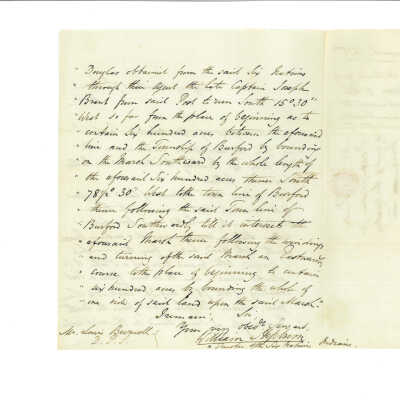 " Douglas obtained from the said Six Nations
" through their Agent the late Captain Joseph
" Brant from said Post to run South 15º 30"
" West so far from the place of beginning as to
" contain Six hundred acres between the aforesaid
" line and the Township of Burford by bounding
" on the Marsh Southward by the whole length of
" the aforesaid Six hundred acres thence South
" 78½º 30' West to the town line of Burford
" thence following the said Town line of
" Burford Southwardly till it intersects the
" aforesaid Marsh thence following the windings
" and turnings of the said Marsh an Eastwardly
" course to the place of beginning to contain
" six hundred acres by bounding the whole of
" one side of said land upon the said Marsh."
I remain Sir
Your very obedt. Servant
William Hepburn
Mr. Lewis Burwell
D. P. S.
Trustee of the Six Nations Indians.